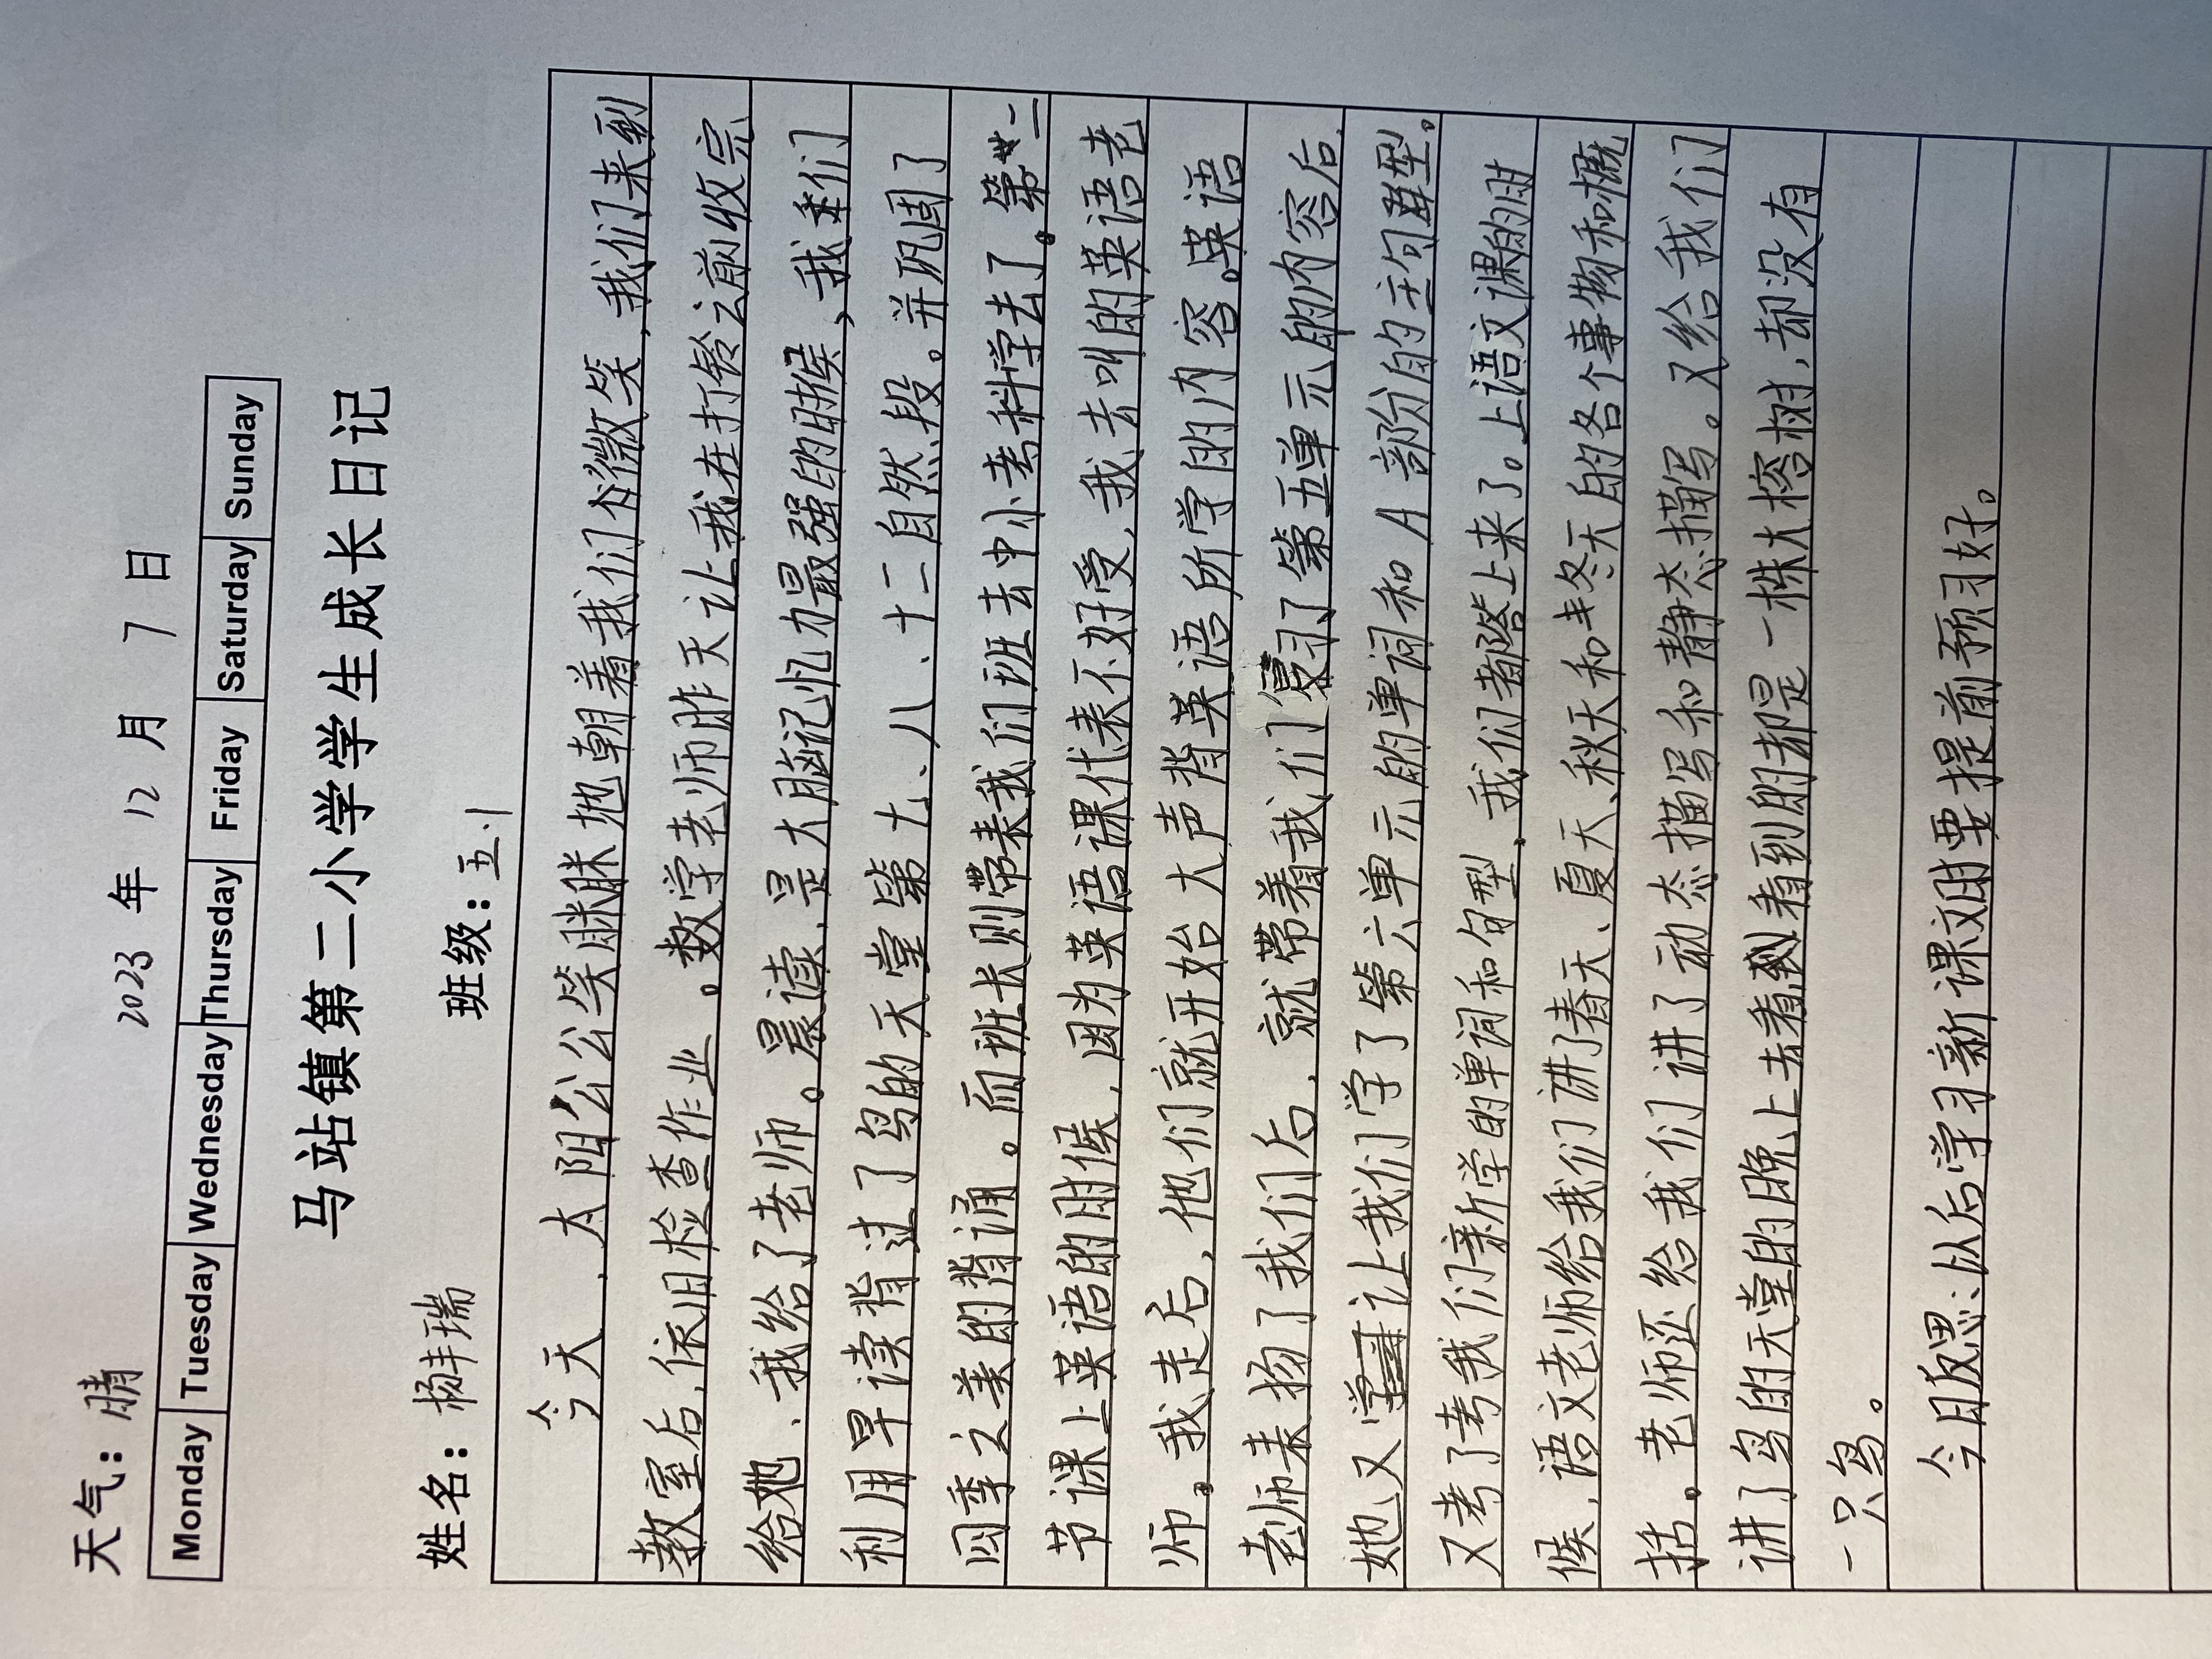 天气：晴 2023 年 12 月 7 日
Monday Tuesday Wednesday Thursday Friday Saturday Sunday
马站镇第二小学学生成长日记
姓名：杨丰瑞 班级：五.1
今天，太阳公公笑眯眯地朝着我们微笑，我们来到
教室后，依旧检查作业。数学老师昨天让我在打铃之前收完
给她，我给了老师。晨读，是大脑记忆力最强的时候，我们
利用早读背过了鸟的天堂第七、八、十二自然段。并巩固了
四季之美的背诵。而班长则带表我们班去中小考科学去了。第二
节课上英语的时候，因为英语课代表不好受，我去叫的英语老
师。我走后，他们就开始大声背英语所学的内容。英语
老师表扬了我们后，就带着我们复习了第五单元的内容后
她又让我们学了第六单元的单词和A部分的主句型。
又考了考我们新学的单词和句型，我们都答上来了。上语文课的时
候，语文老师给我们讲了春天、夏天、秋天和冬天的各个事物和概
括。老师还给我们讲了动态描写和静态描写。又给我们
讲了鸟的天堂的晚上去看到的都是一株大榕树，却没有
一只鸟。
今日反思：以后学习新课文时要提前预习好。